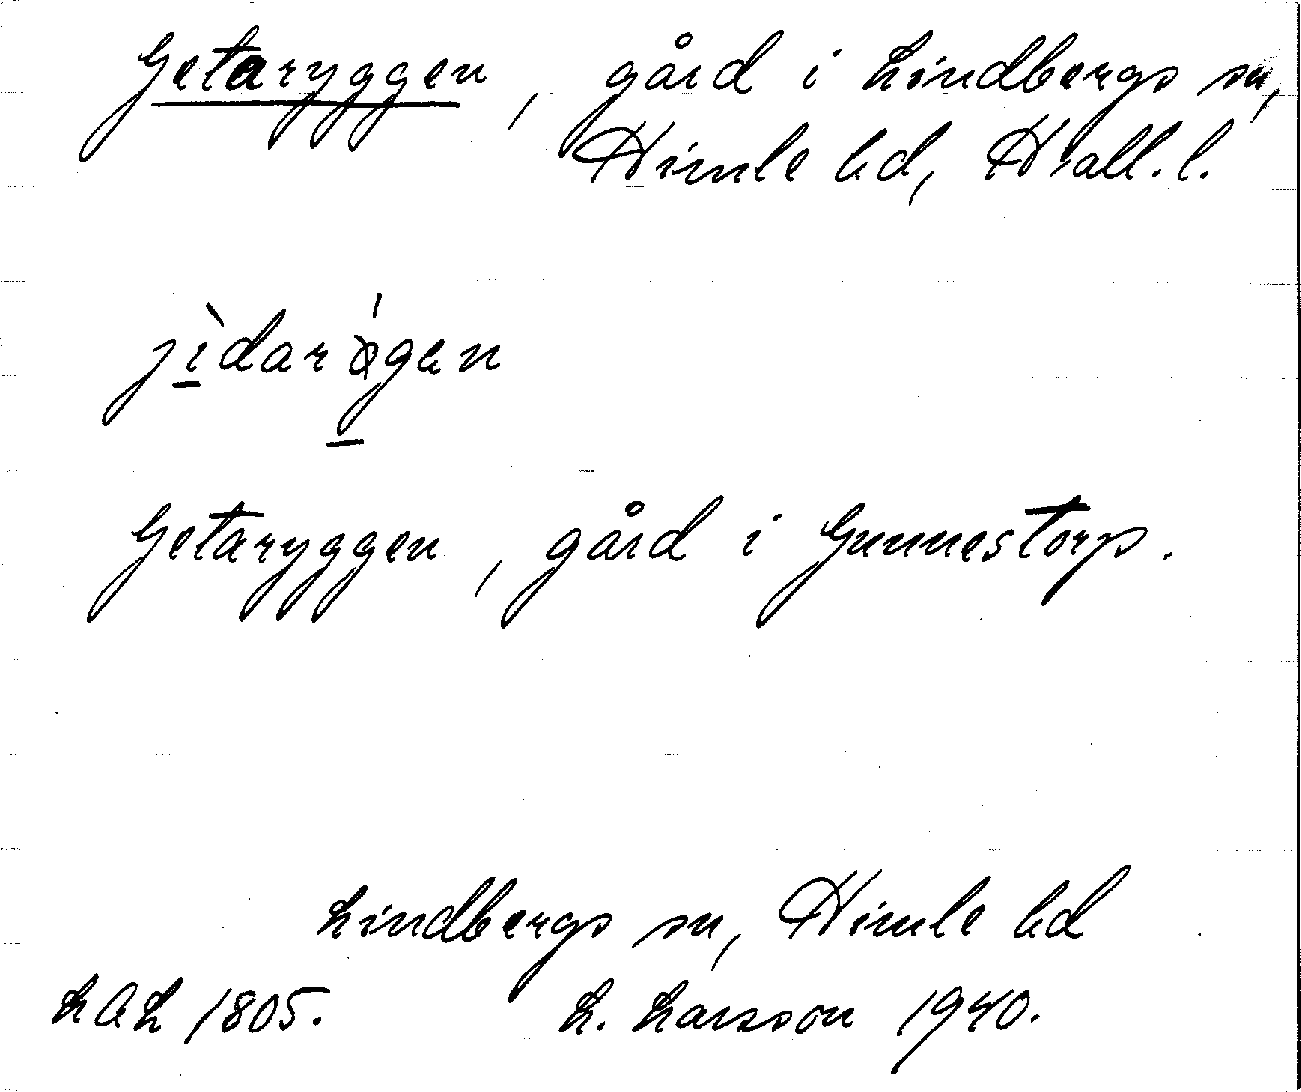 Getaryggen, gård i Lindbergs sn,
Himle hd, Hall. l.
jìdarǿgen
Getaryggen, gård i Gunnestorp.
Lindbergs sn, Himle hd
LAL 1805. L. Larsson 1940.